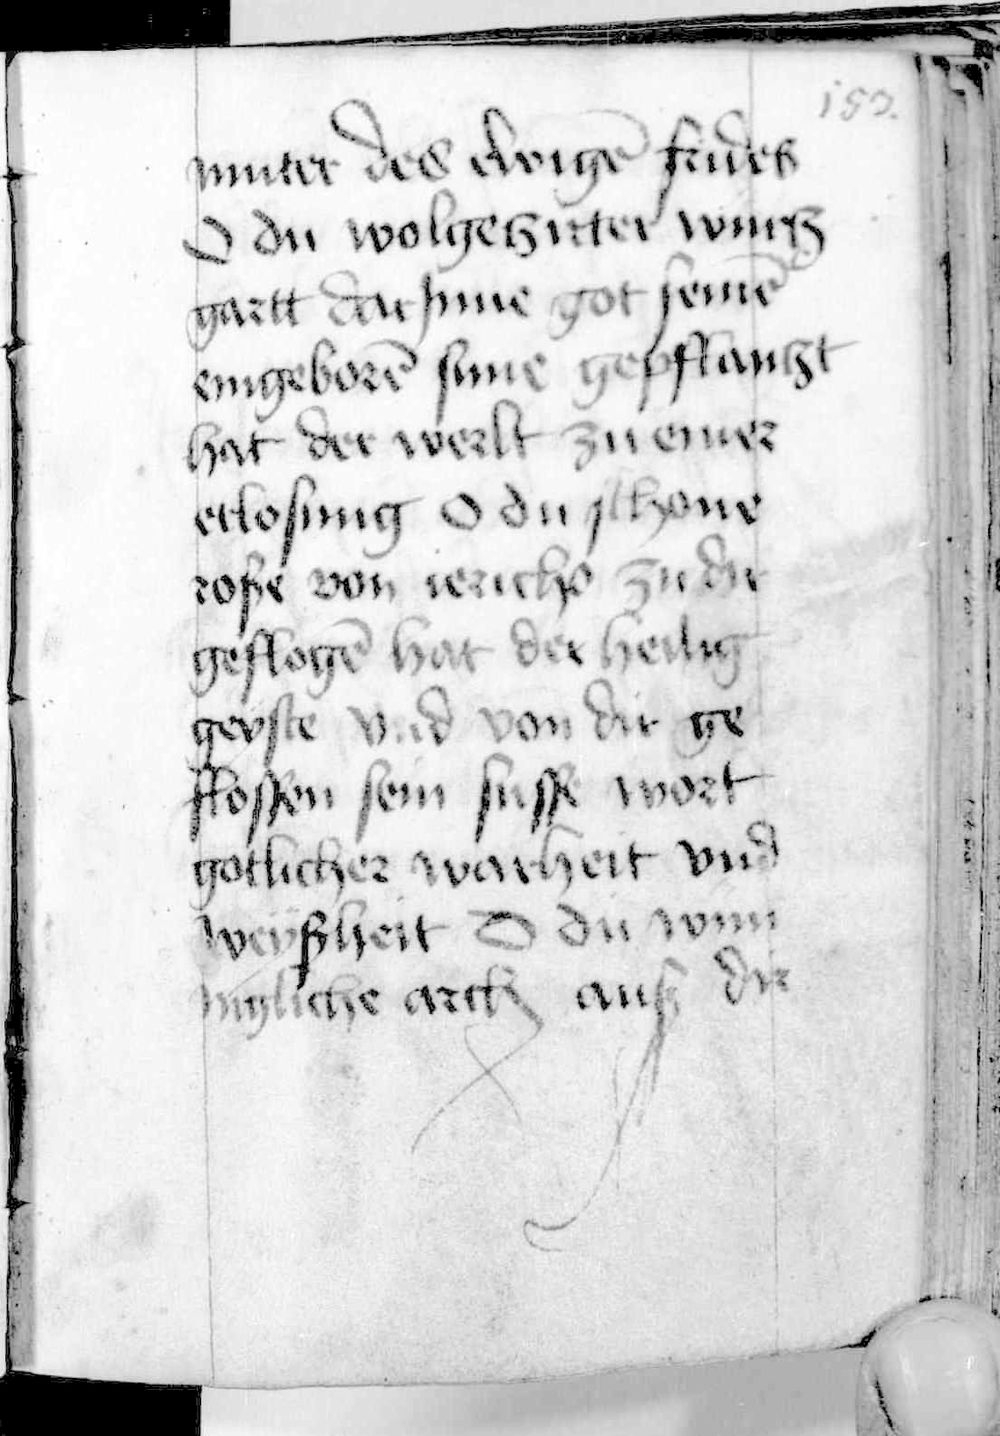 153.
muter des ewigē frides
O du wolgetzirter wurtz
gartt dar Inne got seinē
eingeborē sune gepflantzt
hat der werlt zu einer
erlosung O du schone
rosse von iericho zu dir
geflogē hat der heilig
geyste vnd von dir ge
flossen sein susse wort
gotlicher warheit vnd
weyßheit O du wun
nigliche arck auß dir